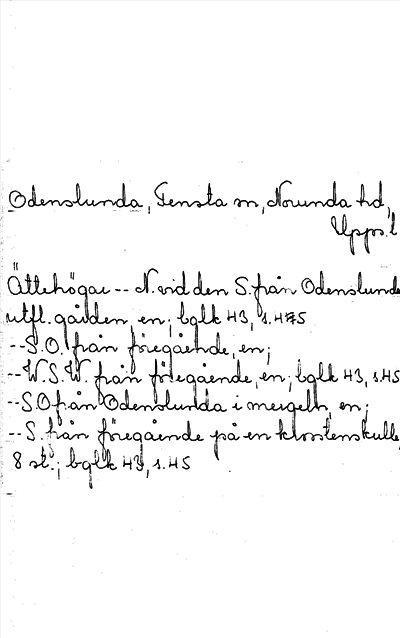 Odenslunda, Tensta sn, Norunda hd,
Upps. l
Ättehögar -- N. vid den S. från Odenslunda
utfl. gården en; bglk 43, s. 45
-- S.O. från föregående, en;
-- W.S.W från föregående, en; bglk 43, s. 45
-- S.O från Odenslunda i mergeln, en;
-- S. från föregående på en klostenskulle,
8 st.; bglk 43, s. 45